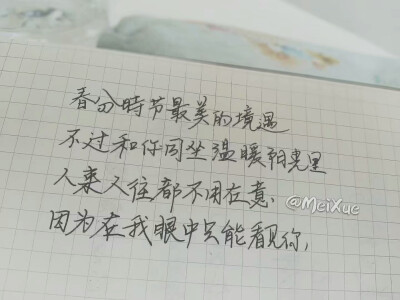 春分時节最美的境遇
不过和你同坐温暖阳光里
人来人往都不用在意、
@MeiXue
因为在我眼中只能看见你,